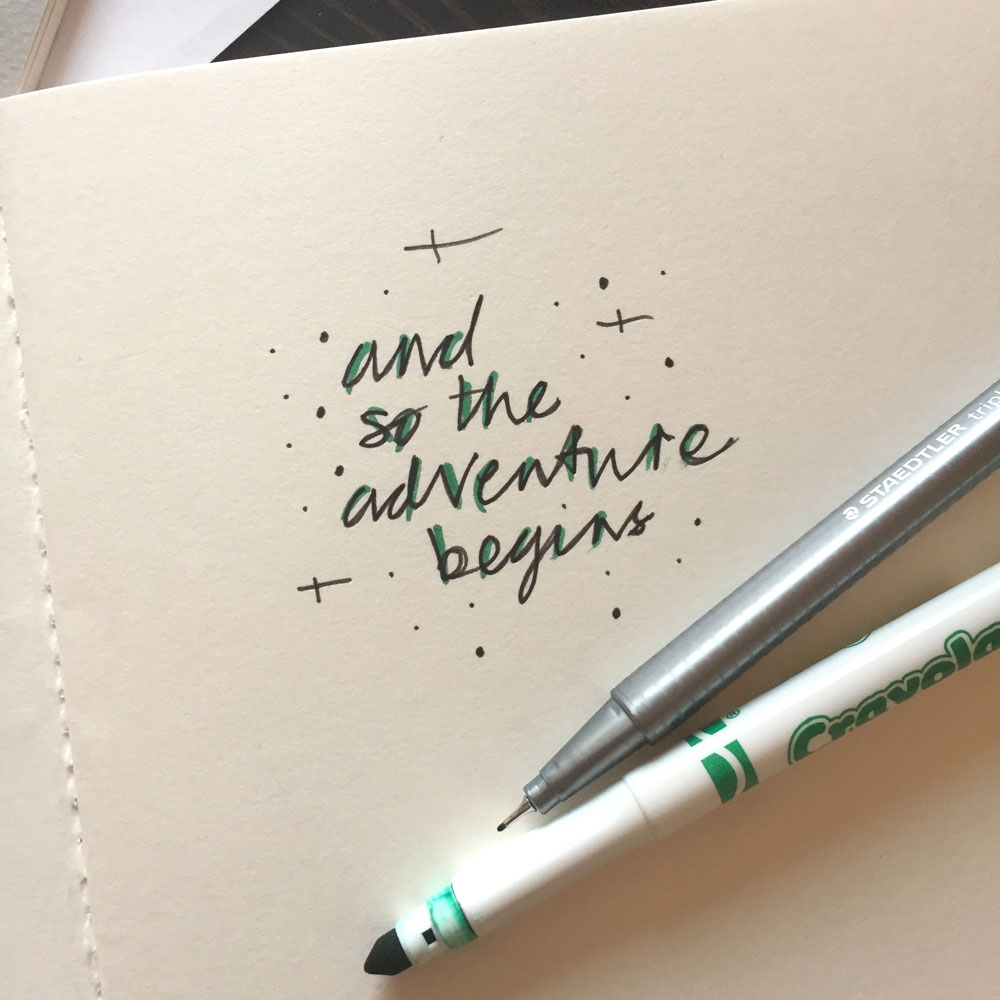 and
so the
adventure
begins
STAEDTLER tripl
Crayola